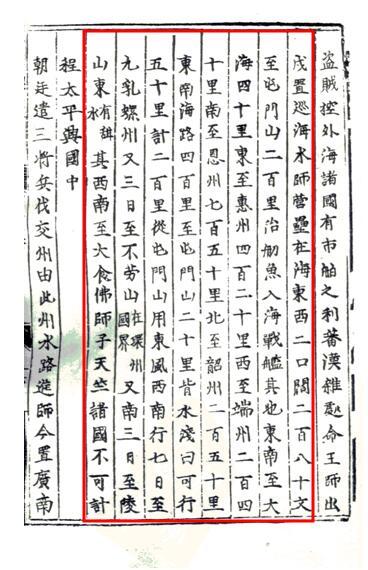 盜賊控外海諸國有市舶之利蕃漢雜處命王師出
戍置巡海水師營壘在海東西二口闊二百八十丈
至屯門山二百里治舠魚入海戰艦其地東南至大
海四十里東至惠州四百二十里西至端州二百四
十里南至恩州七百五十里北至韶州二百五十里
東南海路四百里至屯門山二十里皆水淺日可行
五十里計二百里從屯門山用東風西南行七日至
九乳螺州又三日至不勞山在環州國界又南三日至陵
山東有甜水其西南至大食佛師子天竺諸國不可計
程太平興國中
朝廷遣三將兵伐交州由此州水路進師今置廣南